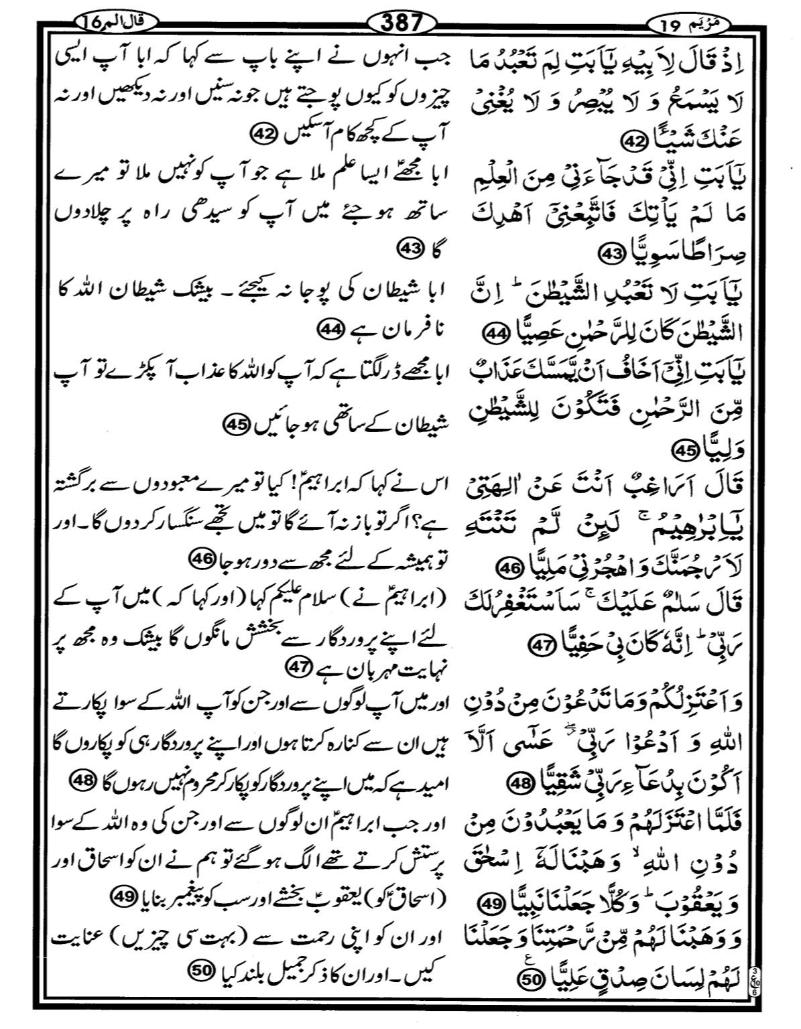 مَرْيَم 19
387
قال الم 16
اِذْ قَالَ لِاَبِيْهِ يٰۤاَبَتِ لِمَ تَعْبُدُ مَا
لَا يَسْمَعُ وَ لَا يُبْصِرُ وَ لَا يُغْنِيْ
عَنْكَ شَيْـًٔا 42
يٰۤاَبَتِ اِنِّيْ قَدْ جَآءَنِيْ مِنَ الْعِلْمِ
مَا لَمْ يَاْتِكَ فَاتَّبِعْنِيْۤ اَهْدِكَ
صِرَاطًا سَوِيًّا 43
يٰۤاَبَتِ لَا تَعْبُدِ الشَّيْطٰنَ ؕ اِنَّ
الشَّيْطٰنَ كَانَ لِلرَّحْمٰنِ عَصِيًّا 44
يٰۤاَبَتِ اِنِّيْۤ اَخَافُ اَنْ يَّمَسَّكَ عَذَابٌ
مِّنَ الرَّحْمٰنِ فَتَكُوْنَ لِلشَّيْطٰنِ
وَلِيًّا 45
قَالَ اَرَاغِبٌ اَنْتَ عَنْ اٰلِهَتِيْ
يٰۤاِبْرٰهِيْمُ ۚ لَىِٕنْ لَّمْ تَنْتَهِ
لَاَرْجُمَنَّكَ وَ اهْجُرْنِيْ مَلِيًّا 46
قَالَ سَلٰمٌ عَلَيْكَ ۚ سَاَسْتَغْفِرُ لَكَ
رَبِّيْ ؕ اِنَّهٗ كَانَ بِيْ حَفِيًّا 47
وَ اَعْتَزِلُكُمْ وَ مَا تَدْعُوْنَ مِنْ دُوْنِ
اللّٰهِ وَ اَدْعُوْا رَبِّيْ ۖؗ عَسٰۤى اَلَّاۤ
اَكُوْنَ بِدُعَآءِ رَبِّيْ شَقِيًّا 48
فَلَمَّا اعْتَزَلَهُمْ وَ مَا يَعْبُدُوْنَ مِنْ
دُوْنِ اللّٰهِ ۙ وَهَبْنَا لَهٗۤ اِسْحٰقَ
وَ يَعْقُوْبَ ؕ وَ كُلًّا جَعَلْنَا نَبِيًّا 49
وَ وَهَبْنَا لَهُمْ مِّنْ رَّحْمَتِنَا وَ جَعَلْنَا
لَهُمْ لِسَانَ صِدْقٍ عَلِيًّا 50 ع
جب انہوں نے اپنے باپ سے کہا کہ ابا آپ ایسی
چیزوں کو کیوں پوجتے ہیں جو نہ سنیں اور نہ دیکھیں اور نہ
آپ کے کچھ کام آسکیں 42
ابا مجھے ایسا علم ملا ہے جو آپ کو نہیں ملا تو میرے
ساتھ ہوجئے میں آپ کو سیدھی راہ پر چلا دوں
گا 43
ابا شیطان کی پوجا نہ کیجئے ۔ بیشک شیطان اللہ کا
نافرمان ہے 44
ابا مجھے ڈر لگتا ہے کہ آپ کو اللہ کا عذاب آ پکڑے تو آپ
شیطان کے ساتھی ہو جائیں 45
اس نے کہا کہ ابراہیمؑ! کیا تو میرے معبودوں سے برگشتہ
ہے؟ اگر تو باز نہ آئے گا تو میں تجھے سنگسار کر دوں گا ۔ اور
تو ہمیشہ کے لئے مجھ سے دور ہو جا 46
(ابراہیمؑ نے) سلام علیکم کہا (اور کہا کہ) میں آپ کے
لئے اپنے پروردگار سے بخشش مانگوں گا بیشک وہ مجھ پر
نہایت مہربان ہے 47
اور میں آپ لوگوں سے اور جن کو آپ اللہ کے سوا پکارتے
ہیں ان سے کنارہ کرتا ہوں اور اپنے پروردگار ہی کو پکاروں گا
امید ہے کہ میں اپنے پروردگار کو پکار کر محروم نہیں رہوں گا 48
اور جب ابراہیمؑ ان لوگوں سے اور جن کی وہ اللہ کے سوا
پرستش کرتے تھے الگ ہو گئے تو ہم نے ان کو اسحاق اور
(اسحاقؑ کو) یعقوبؑ بخشے اور سب کو پیغمبر بنایا 49
اور ان کو اپنی رحمت سے (بہت سی چیزیں) عنایت
کیں ۔ اور ان کا ذکر جمیل بلند کیا 50